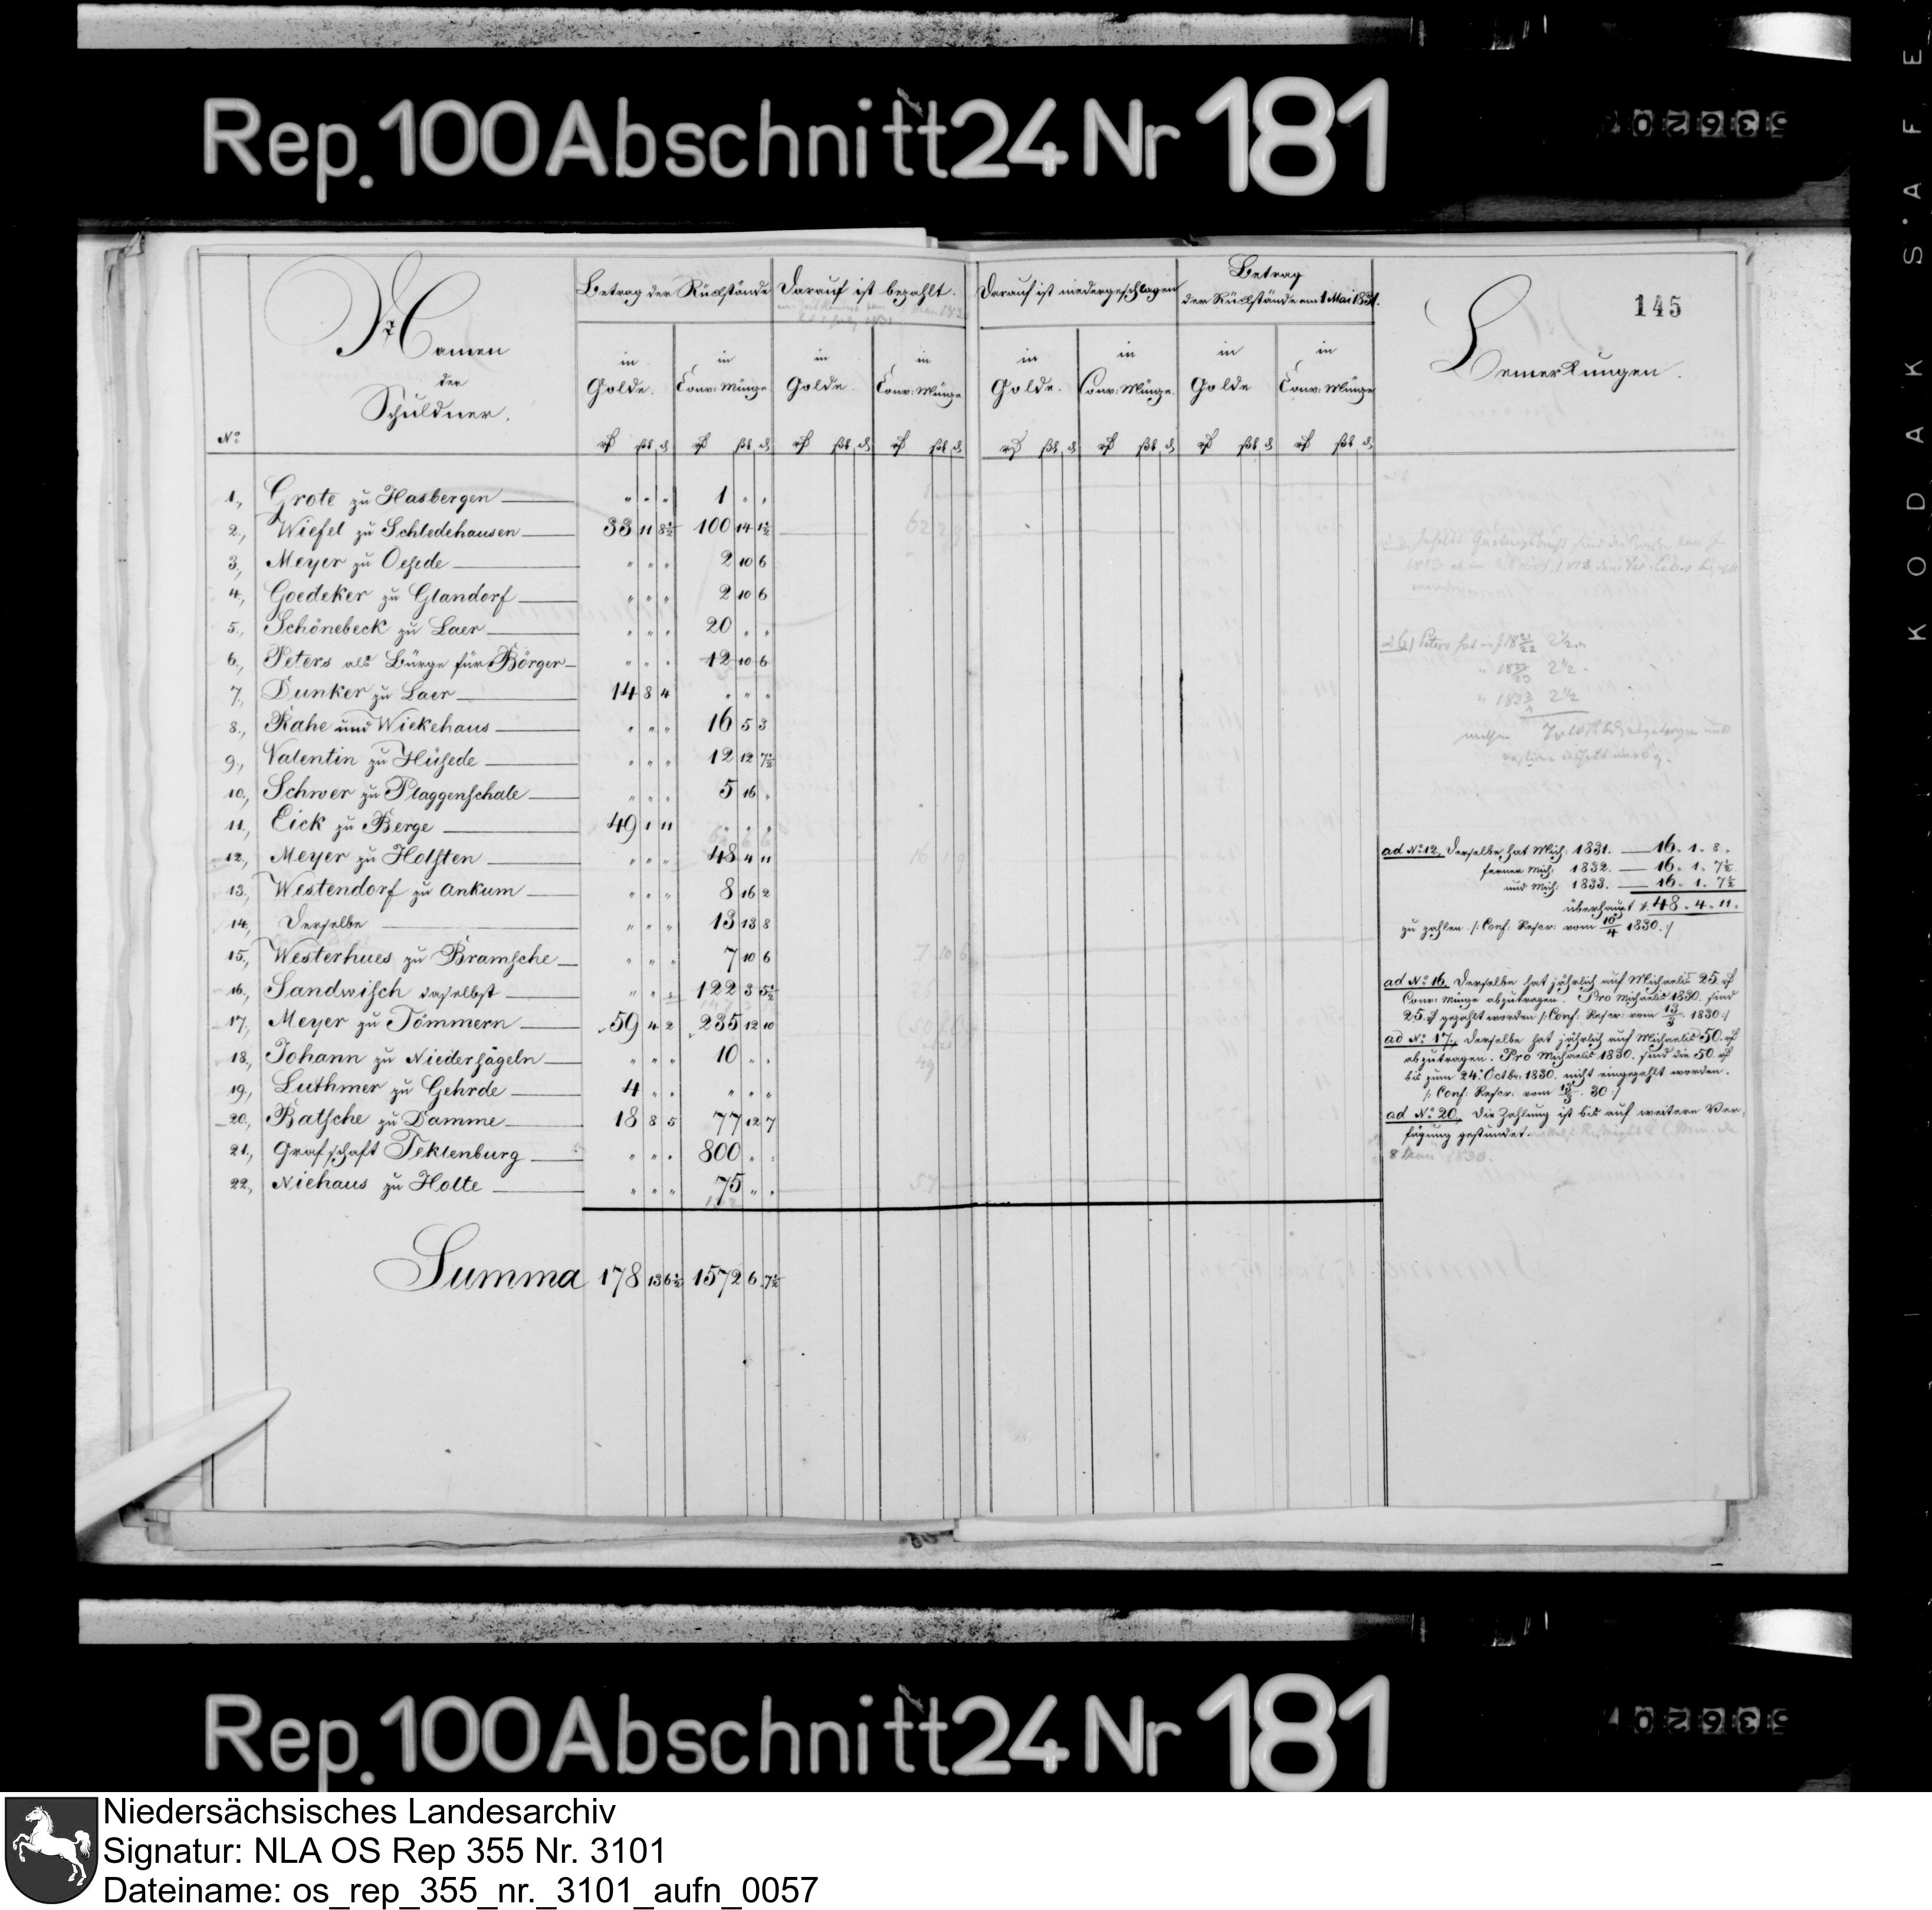 Rep. 100 Abschnitt 24 Nr 181
KODAK SAFE
145
No
Namen
der
Schuldner.
Betrag der Rückstände
Darauf ist bezahlt.
Darauf ist niedergeschlagen
Betrag
der Rückstände am 1 Mai 1831.
Bemerkungen.
in Golde. in Conv: Münze in Golde. in Conv: Münze in Golde. in Conv: Münze. in Golde in Conv: Münze
1., Grote zu Hasbergen " " " 1 " "
2., Wiefel zu Schledehausen 33 11 8½ 100 14 1½
3., Meyer zu Oesede " " " 2 10 6
4., Goedeker zu Glandorf " " " 2 10 6
5., Schönebeck zu Laer " " " 20 " "
6., Peters als Bürge für Börger " " " 12 10 6
7., Dunker zu Laer 14 8 4 " " "
8., Rahe und Wiekehaus " " " 16 5 3
9., Valentin zu Hüsede " " " 12 12 7½
10., Schwer zu Plaggenschale " " " 5 16 "
11., Eick zu Berge 49 1 11 " " "
12., Meyer zu Holsten " " " 48 4 11
13., Westendorf zu Ankum " " " 8 16 2
14., Derselbe " " " 13 13 8
15., Westerhues zu Bramsche " " " 7 10 6
16., Sandwisch daselbst " " " 122 3 5½
17., Meyer zu Tömmern 59 4 2 235 12 10
18., Johann zu Niederhägeln " " " 10 " "
19., Luthmer zu Gehrde 4 " " " " "
20., Batsche zu Damme 18 8 5 77 12 7
21., Grafschaft Teklenburg " " " 800 " "
22., Niehaus zu Holte " " " 75 " "
Summa 178 13 6½ 1572 6 7½
ad No 12. Derselbe hat Mich: 1831. — 16. 1. 8.
ferner Mich: 1832. — 16. 1. 7½
und Mich: 1833. — 16. 1. 7½
überhaupt 48. 4. 11.
zu zahlen /: Conf: Rescr: vom 10/4 1830. :/
ad No 16. Derselbe hat jährlich auf Michaelis 25
Conv: Münze abzutragen. Pro Michaelis 1830. sind
25 gezahlt worden /: Conf: Rescr: vom 13/3 1830 :/
ad No 17., Derselbe hat jährlich auf Michaelis 50.
abzutragen. Pro Michaelis 1830. sind die 50.
bis zum 24. Octbr. 1830. nicht eingezahlt worden.
/: Conf: Rescr: vom 30 :/
ad No 20. Die Zahlung ist bis auf weitere Ver-
fügung gestundet.
Rep. 100 Abschnitt 24 Nr 181
Niedersächsisches Landesarchiv
Signatur: NLA OS Rep 355 Nr. 3101
Dateiname: os_rep_355_nr._3101_aufn_0057